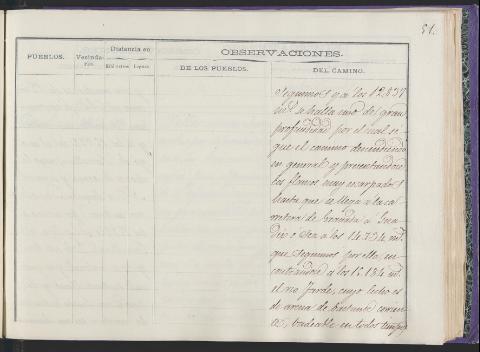 51.
PUEBLOS.
Vecinda-
rios.
Distancia en
Kilómetros. Leguas.
OBSERVACIONES.
DE LOS PUEBLOS.
DEL CAMINO.
seguimos y a los 12.837
mts. se halla uno de gran
profundidad por el cual si-
gue el camino descendiendo
en general y presentandose
los flancos muy escarpados
hasta que se llega a la ca-
rretera de Granada a Gua
dix o sea a los 14.734 mts.
que seguimos por ella, en-
contrandose a los 15.184 mts.
el rio Fardes, cuyo lecho es
de arena de bastante corrien
te, vadeable en todos tiempos